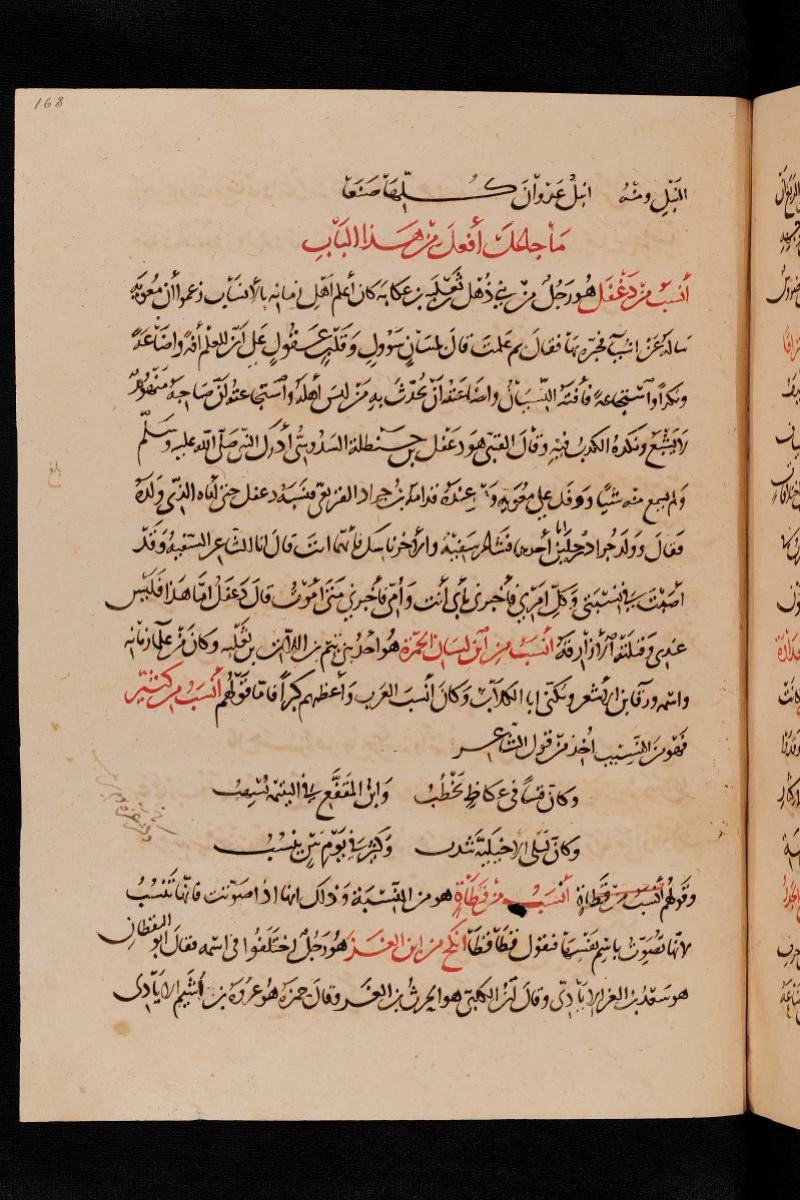 168
النبل ومنه ابل عدوان كلها صنعا
ما جاء على أفعل من هذا الباب
أنسب من دغفل هو رجل من بني ذهل بن ثعلبة بن عكابة كان أعلم اهل زمانه بالأنساب زعموا أن معوية
ساله عن اشيآ فخبره بها فقال بم علمت قال بلسان سؤول وقلب عقول على ان للعلم آفة واضاعة
ونكدا واستجاعة فآفته النسيان واضاعته أن تحدث به من ليس أهله واستجاعته ان صاحبه منهوم
لا يشبع ونكده الكذب فيه وقال القتبي هو دغفل بن حنظلة السدوسي أدرك النبي صلى الله عليه وسلم
ولم يسمع منه شيا ووفد على معوية وعنده قدامة بن جراد القريعي فنسبه دغفل حتى بلغ اباه الذي ولده
فقال وولد جراد رجلين أحدهما فشاعر سفيه والآخر ناسك فأيهما انت قال انا الشاعر السفيه وقد
أصبت في نسبتي وكل امري فأخبرني بأبي أنت وأمي فأخبرني متى أموت قال دغفل اما هذا فليس
عندي وقتلته الازارقة أنسب من ابن لسان الحمرة هو احد بني تيم اللات بن ثعلبه وكان من علما زمانه
واسمه ورقا بن الاشعر ويكنى ابا الكلاب وكان أنسب العرب وأعظمهم كبرا فاما قولهم أنسب من كثير
فهو من النسيب أخذ من قول الشاعر
وكان قسا في عكاظ يخطب وابن المقفع في اليتيمة يسهب
وكان ليلى الاخيلية تندب وكثير في يوم بين ينسب
وقولهم أنسب من قطاة أنسب من قطاة هو من النسبة وذاك انها اذا صوتت فانها تنتسب
لانها تصوت باسم نفسها فتقول قطا قطا أنكح من ابن الغز هو رجل اختلفوا في اسمه فقال أبو اليقظان
هو سعد بن الغز الايادي وقال ابن الكلبي هو الحرث بن الغز وقال حمزة هو عروة بن أشيم الايادي